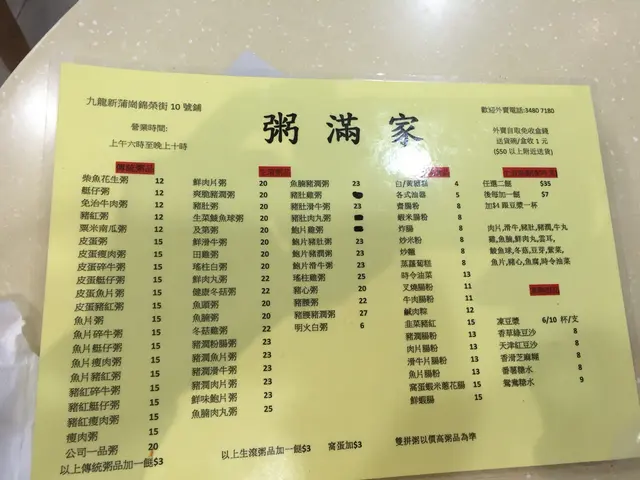 九龍新蒲崗錦榮街 10 號舖
營業時間:
上午六時至晚上十時
粥滿家
歡迎外賣電話:3480 7180
外賣自取免收盒錢
送貨碗/盒收 1 元
($50 以上附近送貨)
傳統粥品
柴魚花生粥 12
艇仔粥 12
免治牛肉粥 12
豬紅粥 12
粟米南瓜粥 12
皮蛋粥 15
皮蛋瘦肉粥 15
皮蛋碎牛粥 15
皮蛋艇仔粥 15
皮蛋魚片粥 15
皮蛋豬紅粥 15
魚片粥 15
魚片碎牛粥 15
魚片艇仔粥 15
魚片瘦肉粥 15
魚片豬紅粥 15
豬紅碎牛粥 15
豬紅艇仔粥 15
豬紅瘦肉粥 15
瘦肉粥 15
公司一品粥 20
以上傳統粥品加一餸$3
鮮肉片粥 20
爽脆豬潤粥 20
豬肚粥 20
生菜鯪魚球粥 20
及第粥 20
鮮滑牛粥 20
田雞粥 20
瑤柱白粥 20
鮮肉丸粥 22
健康冬菇粥 22
魚頭粥 20
魚腩粥 20
冬菇雞粥 22
豬潤粉腸粥 23
豬潤魚片粥 23
豬潤滑牛粥 23
豬潤肉片粥 23
鮮味鮑片粥 23
魚腩肉丸粥 25
魚腩豬潤粥 23
豬肚雞粥
豬肚滑牛粥 23
豬肚肉丸粥
鮑片雞粥
鮑片豬肚粥 23
鮑片豬潤粥 23
鮑片滑牛粥 23
瑤柱雞粥 25
豬心粥 20
豬腰粥 22
豬腰豬潤粥 27
明火白粥 6
以上生滾粥品加一餸$3 窩蛋加$3
4
各式油器 5
齋腸粉 8
蝦米腸粉 8
炸腸 8
炒米粉 8
炒麵 8
蒸蘿蔔糕 8
時令油菜 13
叉燒腸粉 11
牛肉腸粉 11
鹹肉粽 12
韭菜豬紅 15
豬潤腸粉 13
肉片腸粉 13
滑牛片腸粉 13
魚片腸粉 13
窩蛋蝦米蔥花腸 15
鮮蝦腸 15
雙拼粥以價高粥品為準
任選二餸 $35
後每加一餸 $7
加$4 跟豆漿一杯
肉片,滑牛,豬肚,豬潤,牛丸
雞,魚腩,鮮肉丸,雲耳,
鯪魚球,冬菇,豆芽,紫菜,
魚片,豬心,魚腐,時令油菜
凍豆漿 6/10 杯/支
香草綠豆沙 8
天津紅豆沙 8
香滑芝麻糊 8
番薯糖水 8
鴛鴦糖水 9